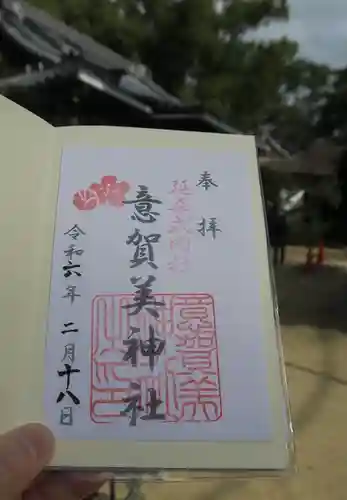 奉拝
延喜式内社
意賀美神社
令和六年二月十八日